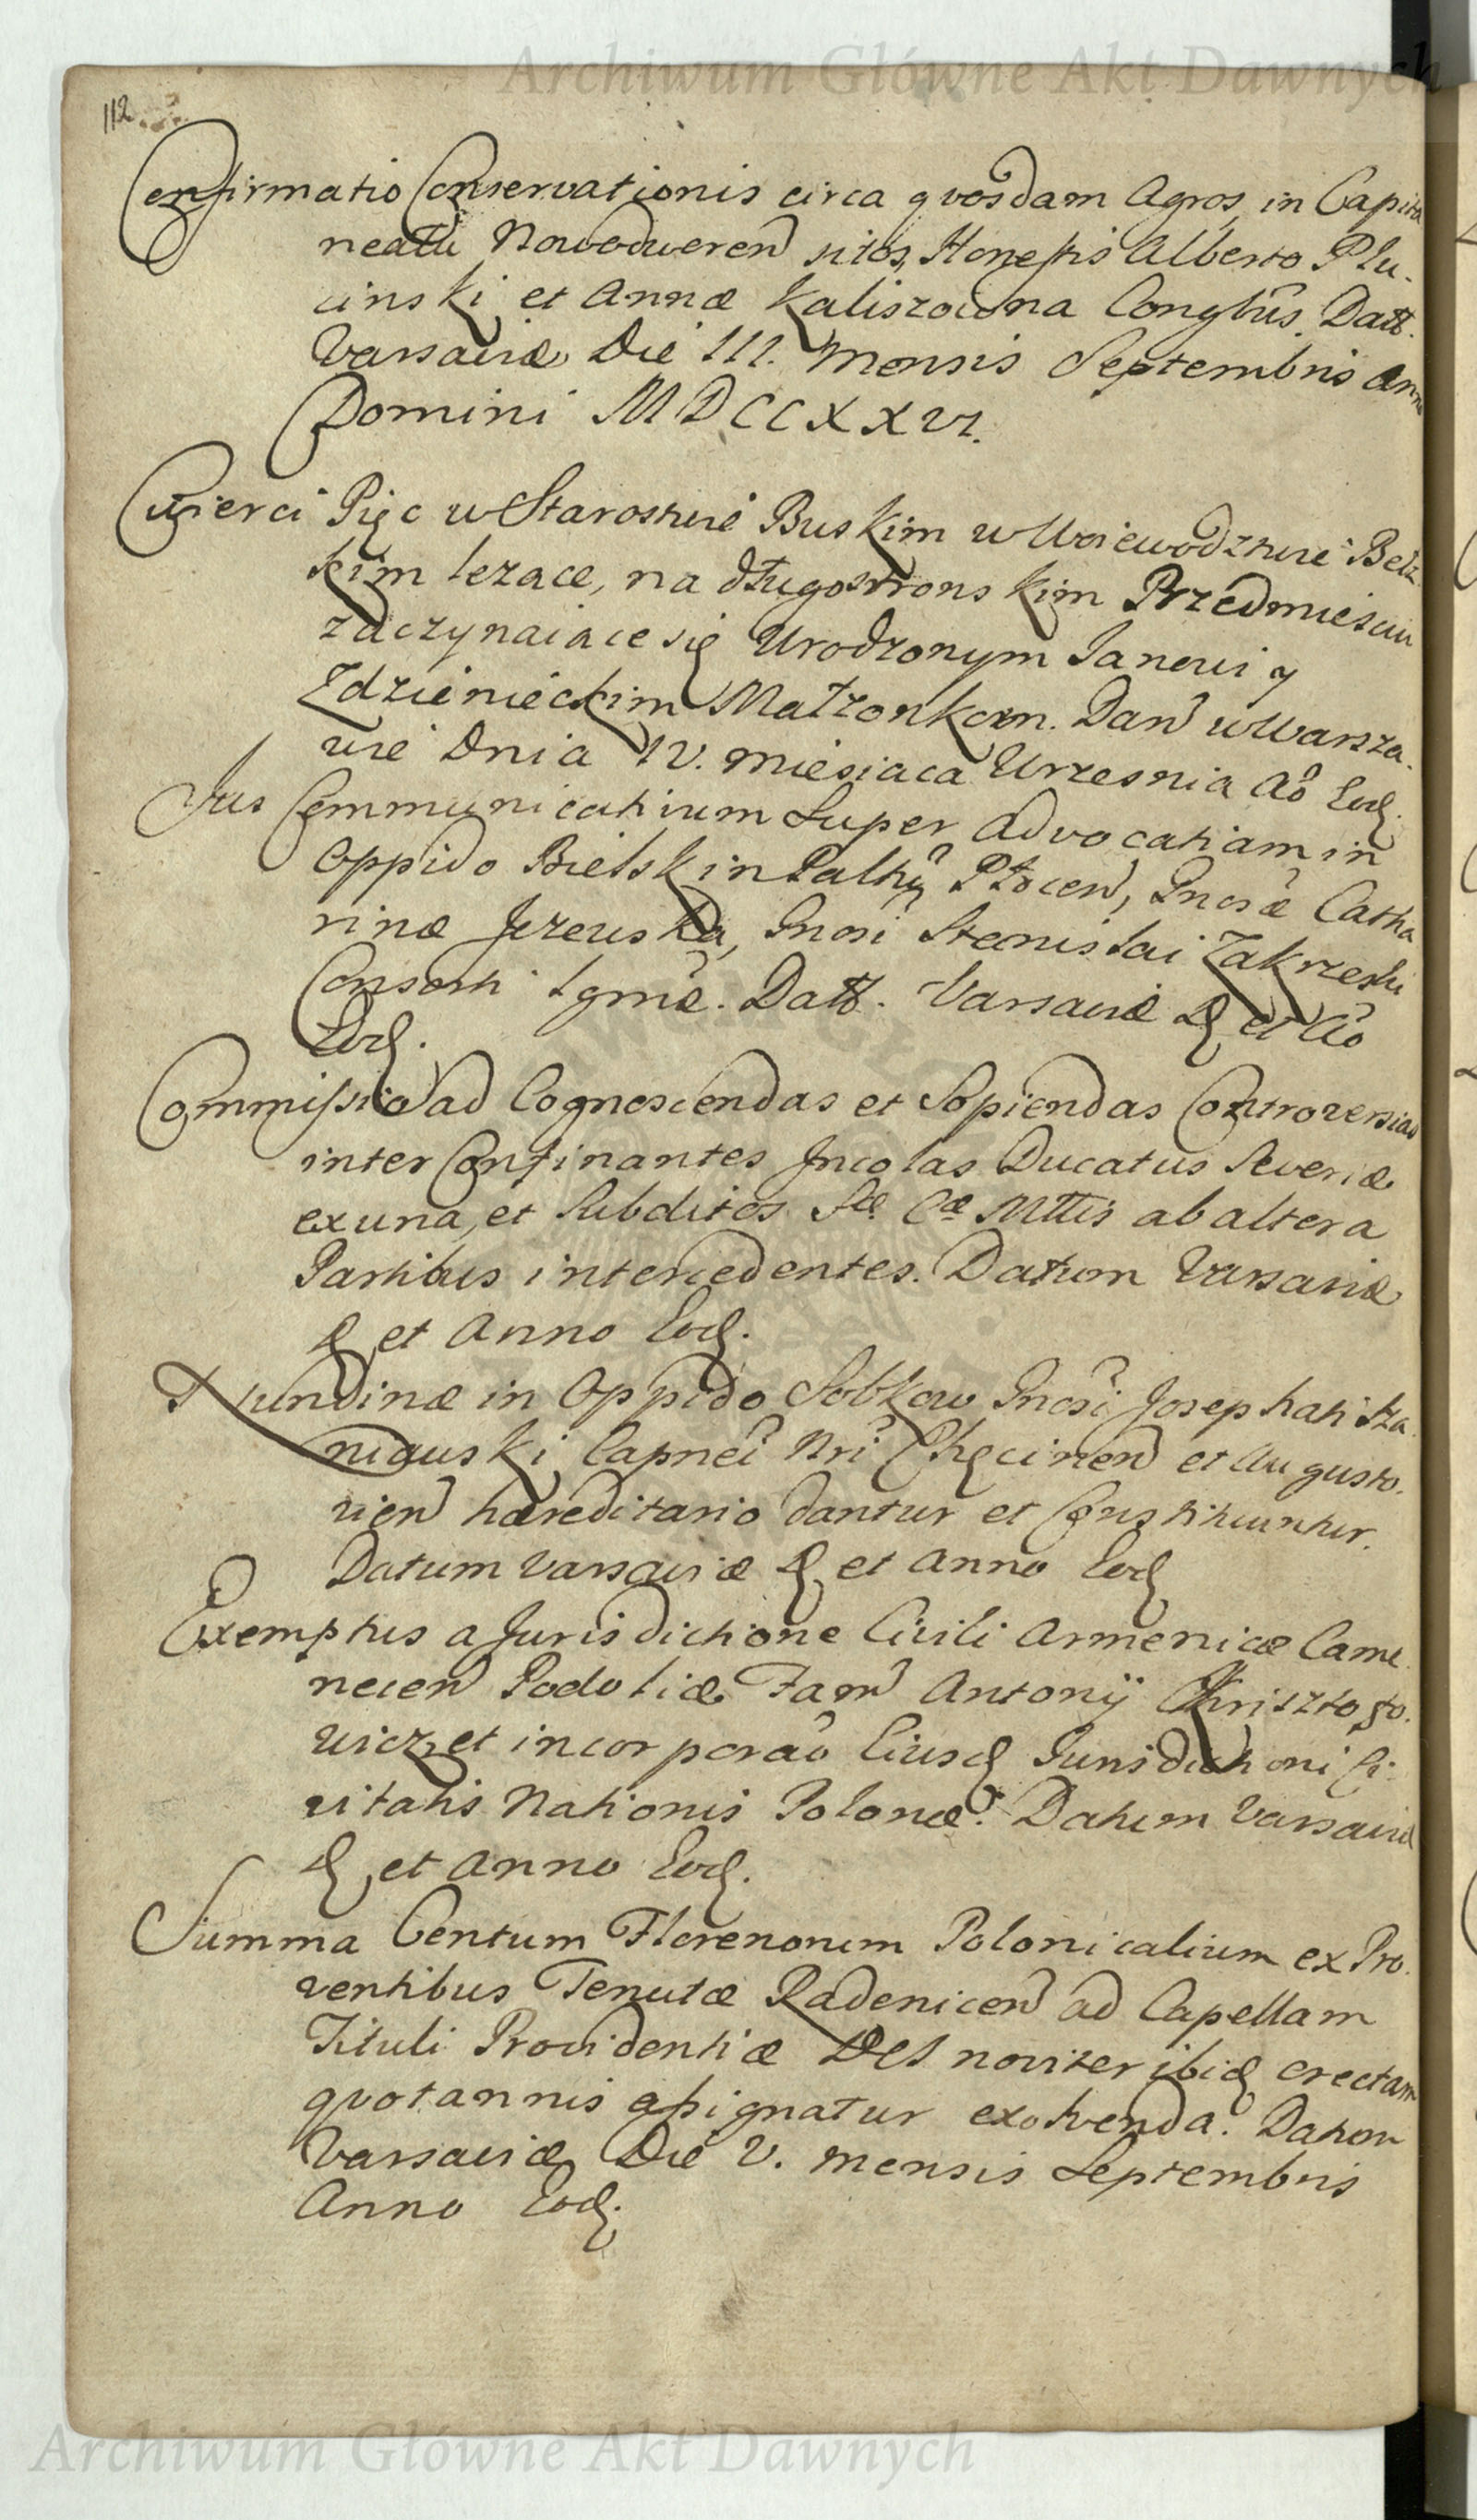 Archiwum Główne Akt Dawnych
112
Confirmatio Conservationis circa qvosdam Agros in Capita
neatu Nowodweren sitos, Honestis Alberto Plu-
cinski et Annæ Kaliszowna Congbus. Datt.
Varsaviæ Die III. Mensis Septembris Anno
Domini MDCCXXVI.
Cwierci Pięc w Starostwie Buskim w Woiewodztwie Bełz
kim lezace, na długostronskim Przedmiesciu
zaczynaiace się Urodzonym Janowi y
Zdzienieckim Małzonkom. Dan w Warsza-
wie Dnia IV. Miesiaca Wrzesnia Ao Eod.
Jus Communicativum Super Advocatiam in
Oppido Bielsk in Palttu Płocen, Gnosæ Catha
rinæ Jezewska, Gnosi Stanislai Zakrzeski
Consorti Lgmæ. Datt. Varsaviæ D et Ao
Eod.
Commissio ad Cognoscendas et Sopiendas Controversias
inter Confinantes Incolas Ducatus Severiæ
ex una, et Subditos Sæ Cæ Mttis ab altera
Partibus intercedentes. Datum Varsaviæ
D et Anno Eod.
Nundinæ in Oppido Sobkow Gnosi Josephati Sza
niawski Capnei Nri Chęcinen et Augusto-
vien hæreditario dantur et Constituuntur.
Datum Varsaviæ D et Anno Eod
Exemptus a Jurisdictione Civili Armenicæ Came
necen Podoliæ Fam Antonij Chrisztofo-
wicz et incorporao Eiusd Jurisdictioni Ci-
vitatis Nationis Polonæ. Datum Varsaviæ
D et Anno Eod.
Summa Centum Florenorum Polonicalium ex Pro-
ventibus Tenutæ Radenicen ad Capellam
Tituli Providentiæ DEI noviter ibid erectam
quotannis assignatur exolvenda. Datum
Varsaviæ Die V. Mensis Septembris
Anno Eod.
Archiwum Główne Akt Dawnych